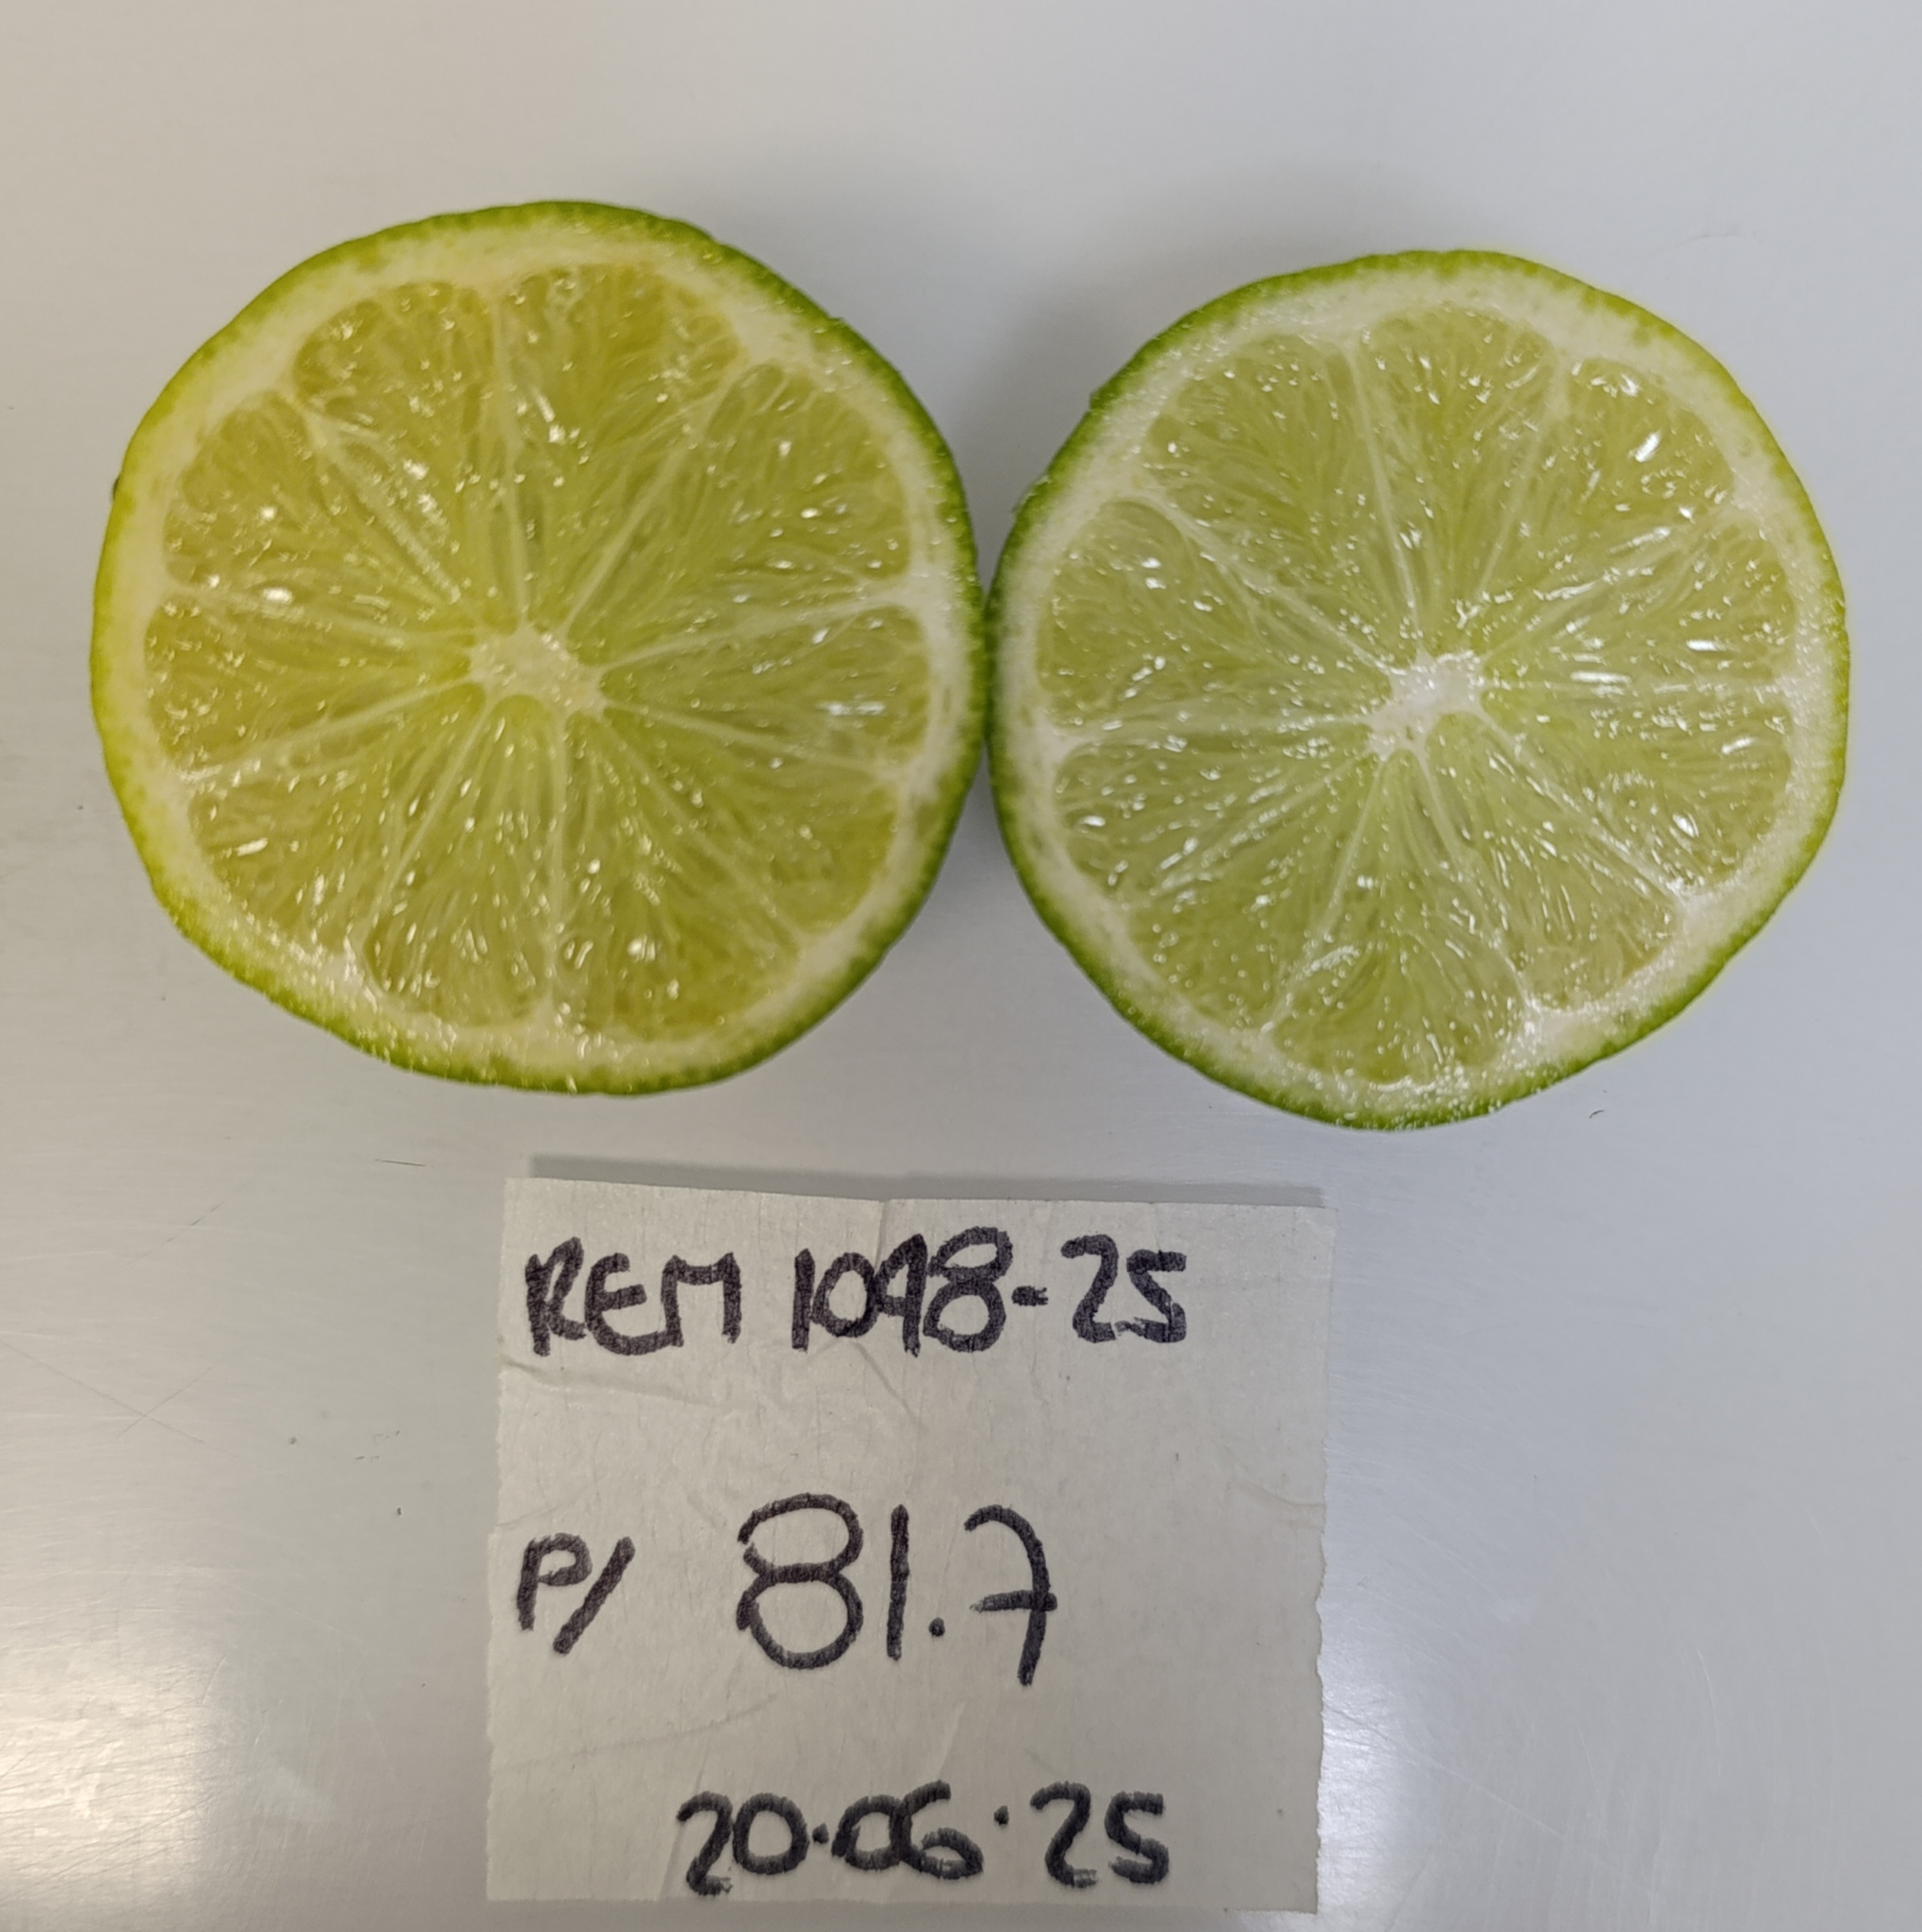 REM 1098-25
P/ 81.7
20.06.25